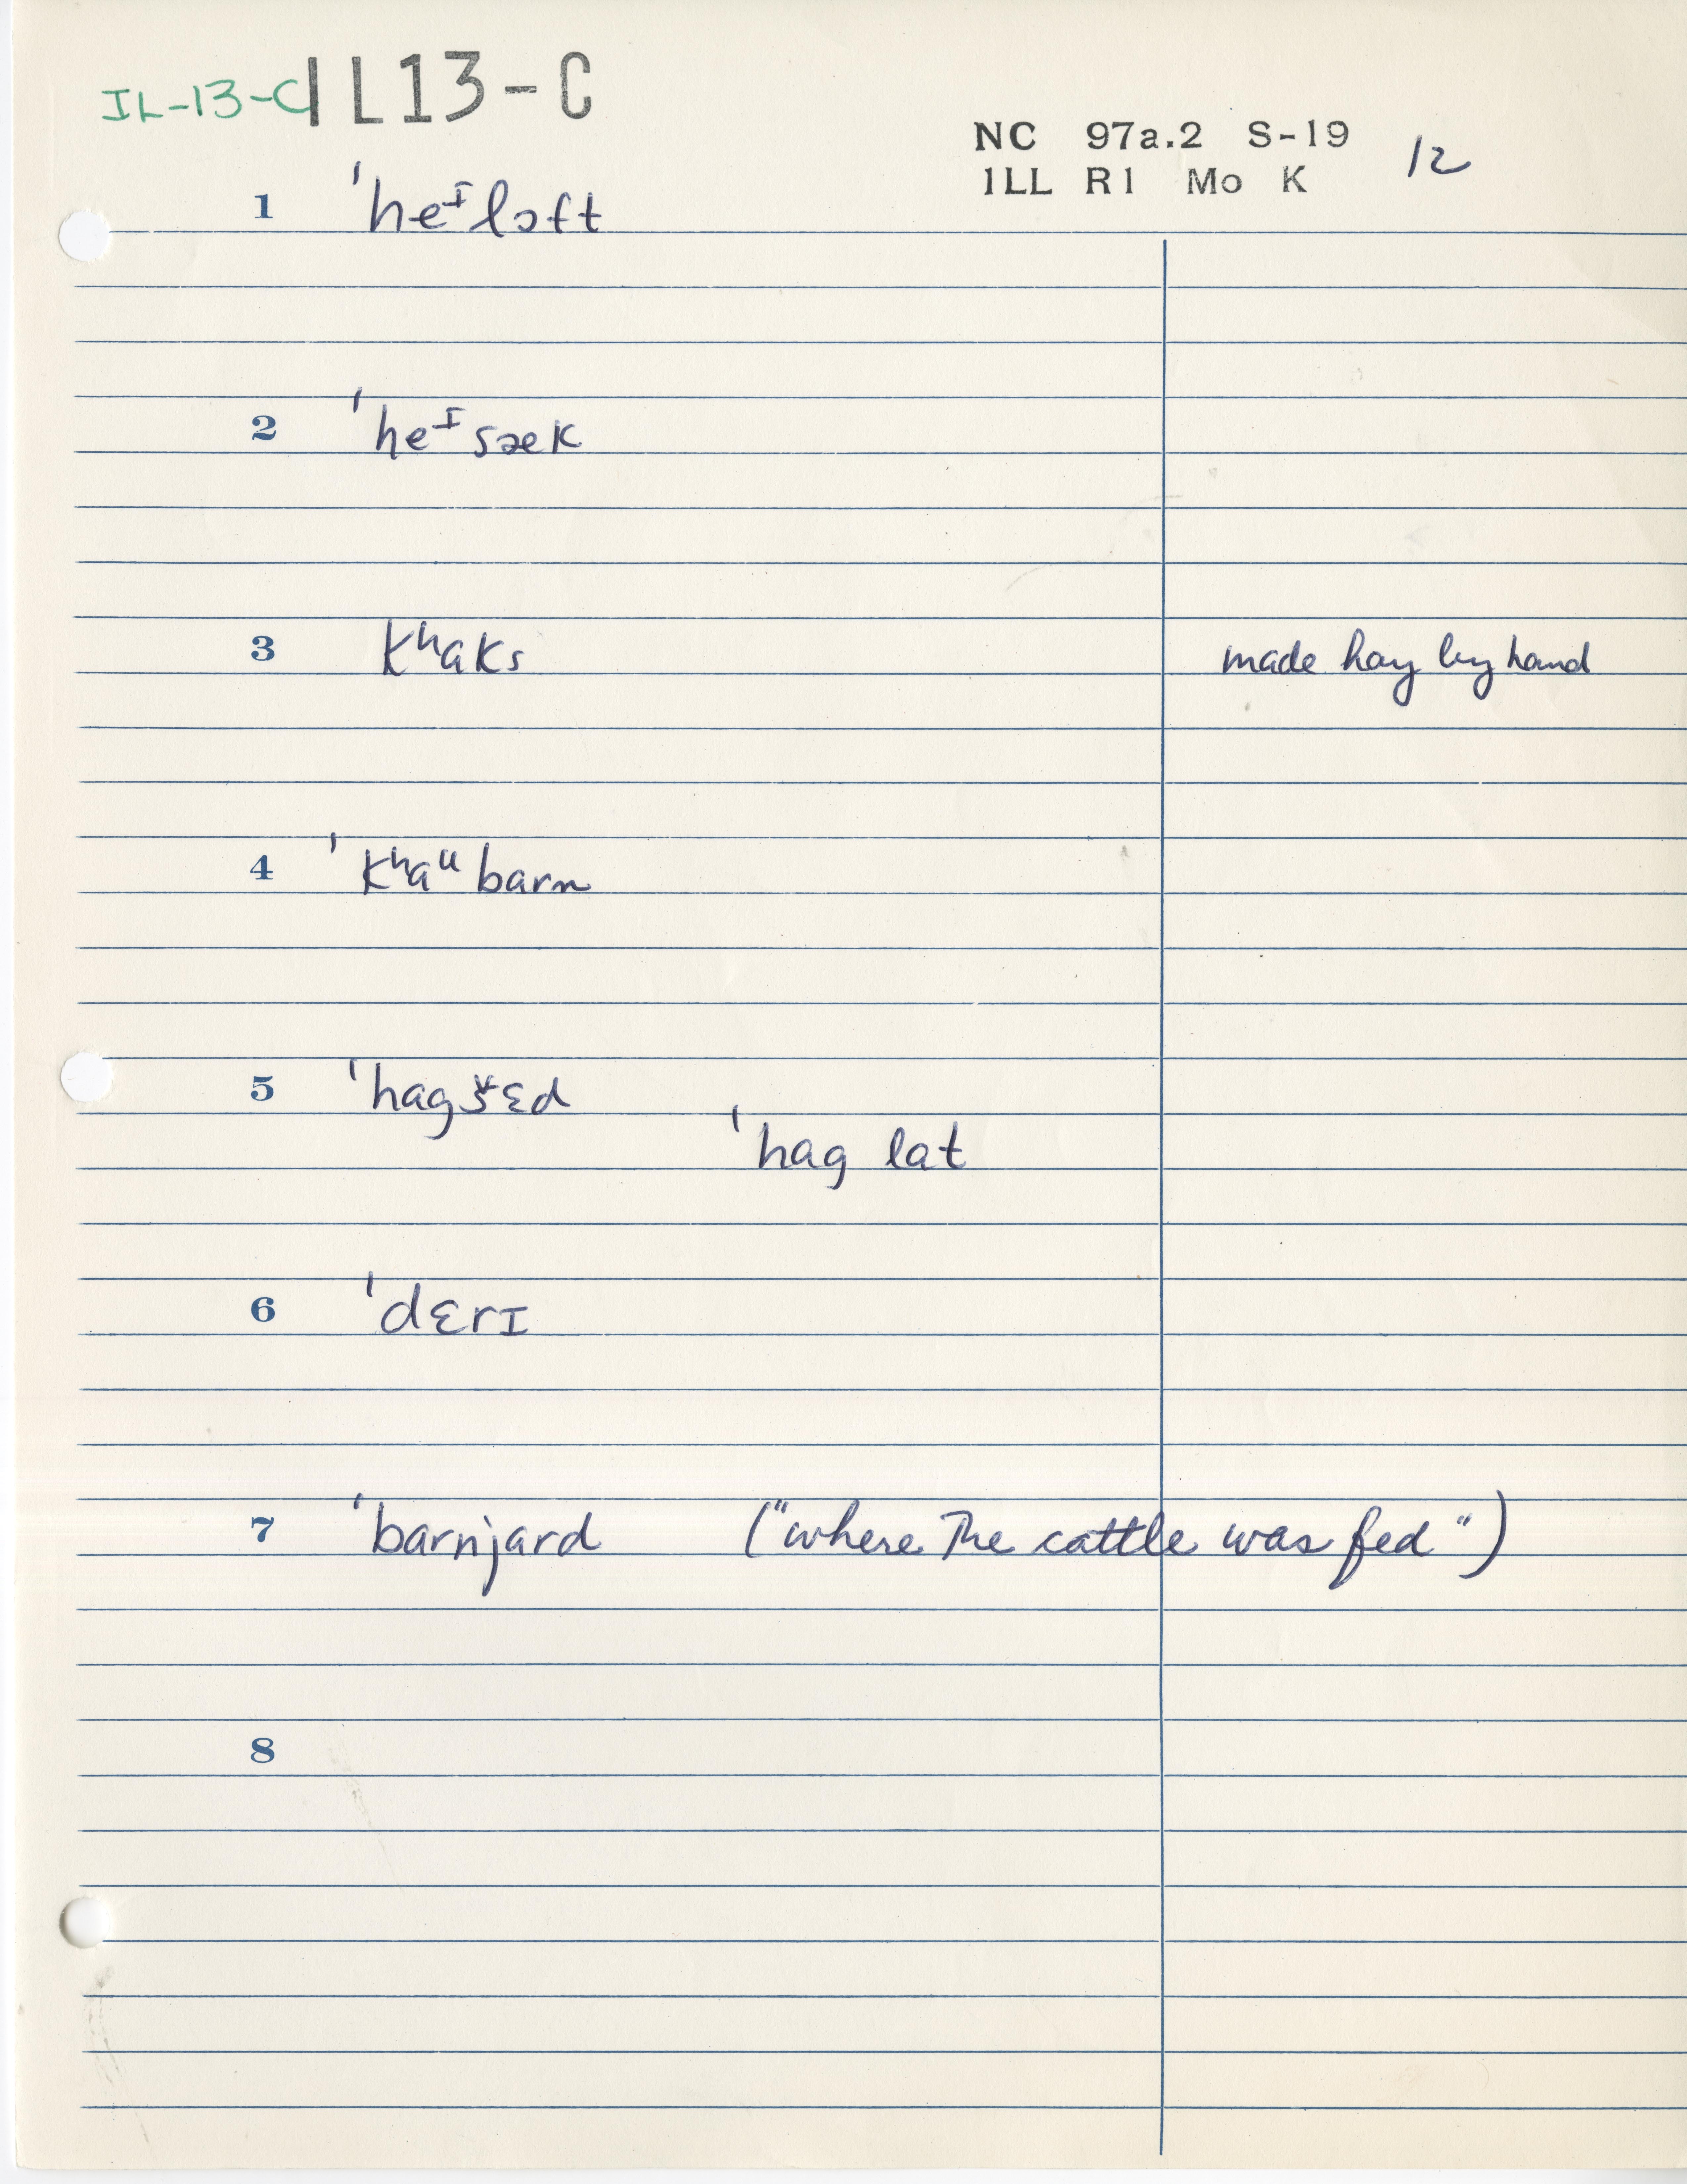 IL-13-C IL13-C
NC 97a.2 S-19 12
ILL R1 Mo K
1 ˈheᴵlɔft
2 ˈheᴵsæk
3 kʰaks made hay by hand
4 ˈkʰaᵘbarn
5 ˈhagšɛd
ˈhag lat
6 ˈdɛrɪ
7 ˈbarnjard ("where the cattle was fed")
8